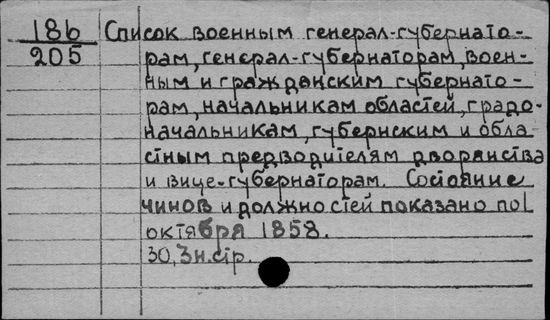 186 Список военным генерал-губернато-
205 рам, генерал-губернаторам, воен-
ным и гражданским губернато-
рам, начальникам областей, градо-
начальникам, губернским и обла-
стным предводителям дворянства
и вице-губернаторам. Состояние
чинов и должностей показано по 1
октября 1858.
30, 3 н. стр.